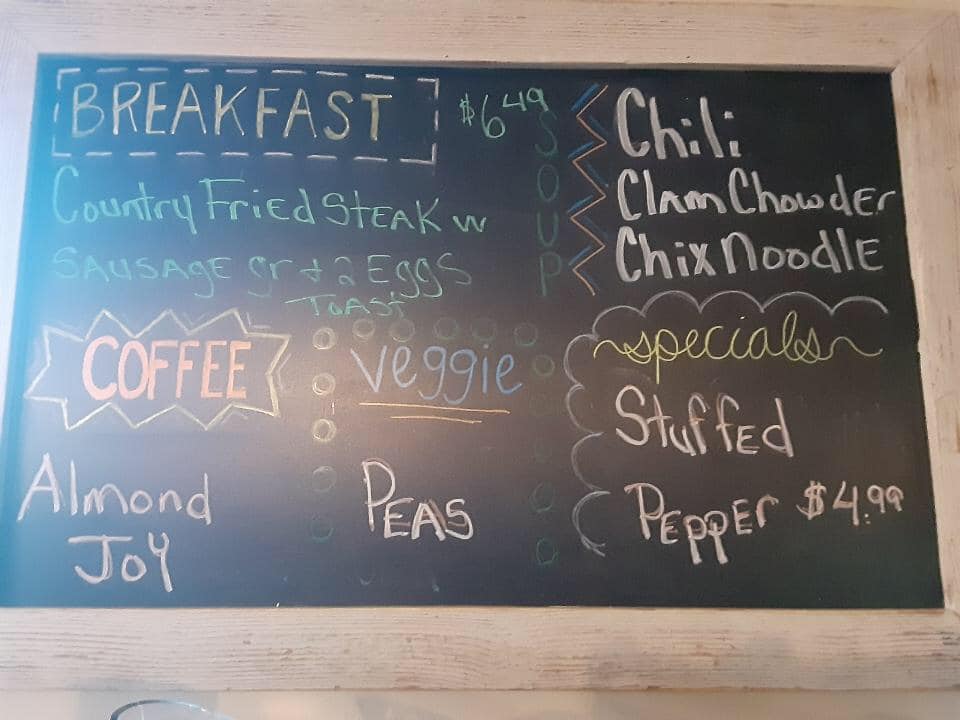 BREAKFAST $6.49
Country Fried Steak w
Sausage gr + 2 Eggs
Toast
SOUP
Chili
Clam Chowder
Chix Noodle
COFFEE
Almond
Joy
veggie
Peas
specials
Stuffed
Pepper $4.99